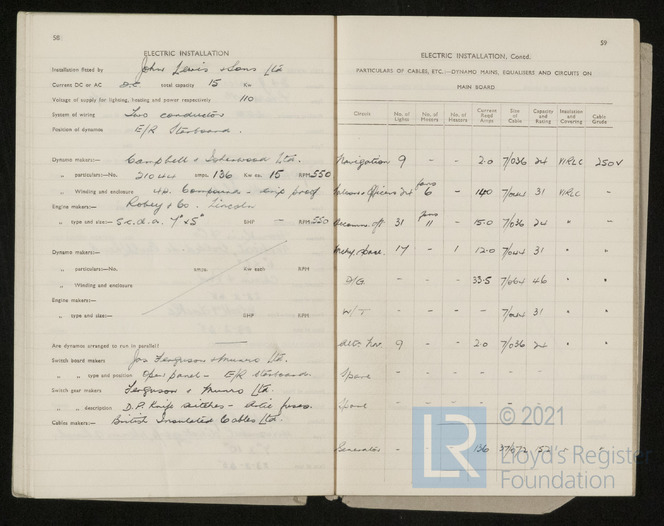 58
ELECTRIC INSTALLATION
Installation fitted by John Lewis & Sons Ltd
Current DC or AC D.C. total capacity 15 Kw
Voltage of supply for lighting, heating and power respectively 110
System of wiring Two conductors
Position of dynamos E/R Starboard.
Dynamo makers:— Campbell & Isherwood Ltd.
„ particulars:—No. 21044 amps. 136 Kw ea. 15 RPM 550
„ Winding and enclosure 4p. Compound - drip proof
Engine makers:— Robey & Co. Lincoln
„ type and size:— S.c.d.a. 7" x 5" BHP — RPM 550
Dynamo makers:—
„ particulars:—No. amps. Kw each RPM
„ Winding and enclosure
Engine makers:—
„ type and size:— BHP RPM
Are dynamos arranged to run in parallel? —
Switch board makers Jas Ferguson & Munro Ltd.
„ „ type and position Open panel - E/R Starboard.
Switch gear makers Ferguson & Munro Ltd.
„ „ description D.P. Knife switches - fuses.
Cables makers:— British Insulated Cables Ltd.
59
ELECTRIC INSTALLATION, Contd.
PARTICULARS OF CABLES, ETC.—DYNAMO MAINS, EQUALISERS AND CIRCUITS ON
MAIN BOARD
Circuits No. of Lights No. of Motors No. of Heaters Current Road Amps Size of Cable Capacity and Rating Insulation and Covering Cable Grade
Navigation 9 - - 2.0 7/036 24 VRLC 250V
Officers 24 fans 6 - 140 7/044 31 VRLC -
Accomm. aft 31 fans 11 - 15.0 7/036 24 " -
17 - 1 12.0 7/044 31 " "
D/G - - - 33.5 7/064 46 " "
W/T - - - - 7/044 31 " "
Nav. 9 - - 2.0 7/036 24 " "
Spare - - - - - - -
Spare - - - - - -
Generator - - - 136 37/072 152 - "
© 2021
LR
Lloyd's Register
Foundation